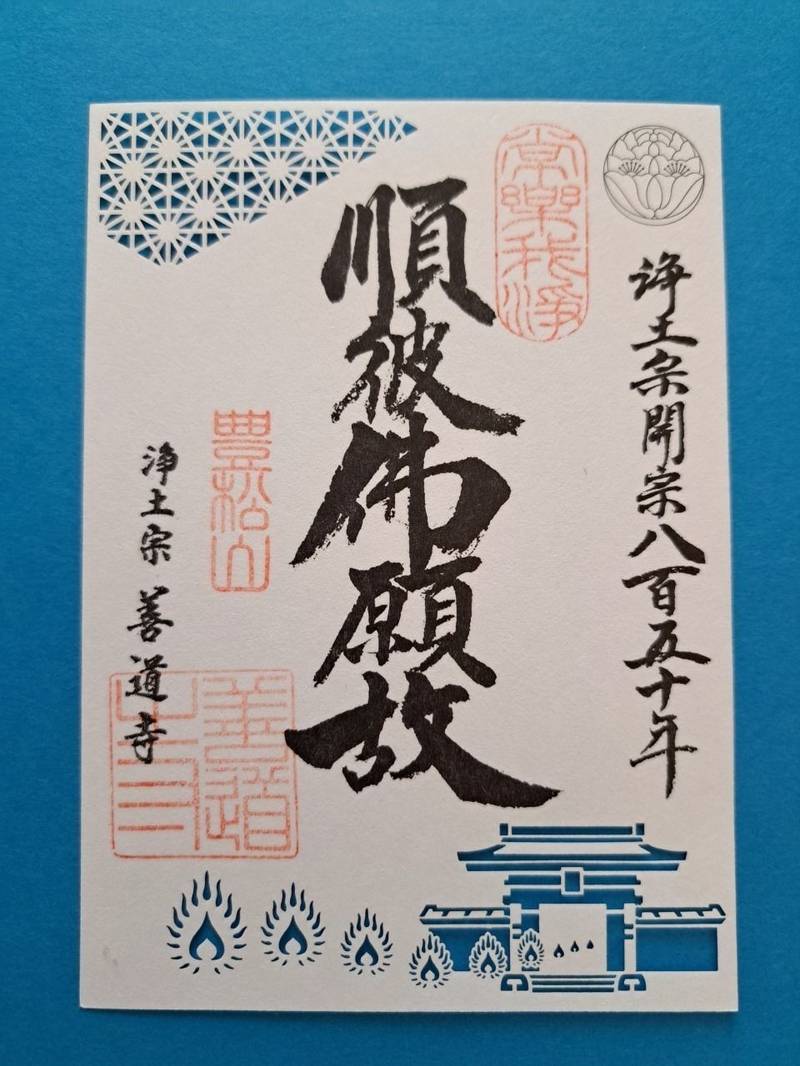 浄土宗開宗八百五十年
常樂我淨
順彼佛願故
豊松山
浄土宗 善道寺
善道寺